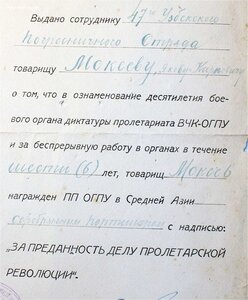 Выдано сотруднику 47го Убоского
пограничного Отряда
товарищу Мокоеву
о том, что в ознаменование десятилетия бое-
вого органа диктатуры пролетариата ВЧК-ОГПУ
и за беспрерывную работу в органах в течение
шести (6) лет, товарищ Мокоев
награжден ПП ОГПУ в Средней Азии
серебряным портсигаром с надписью:
„ЗА ПРЕДАННОСТЬ ДЕЛУ ПРОЛЕТАРСКОЙ
РЕВОЛЮЦИИ".